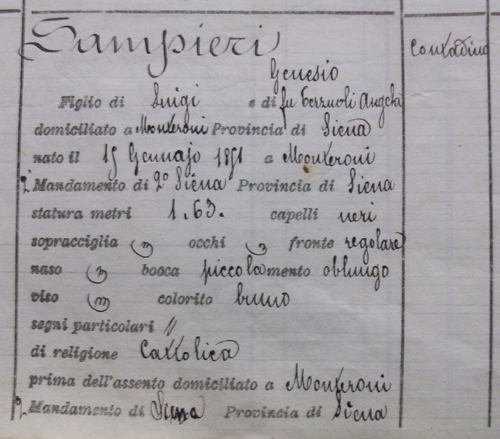 Sampieri
Genesio
Contadino
Figlio di Luigi e di fu Terzuoli Angela
domiciliato a Monteroni Provincia di Siena
nato il 15 Gennajo 1891 a Monteroni
Mandamento di 2º Siena Provincia di Siena
statura metri 1.63. capelli neri
sopracciglia occhi fronte regolare
naso bocca piccola mento oblungo
viso colorito bruno
segni particolari //
di religione Cattolica
prima dell'assento domiciliato a Monteroni
Mandamento di Siena Provincia di Siena